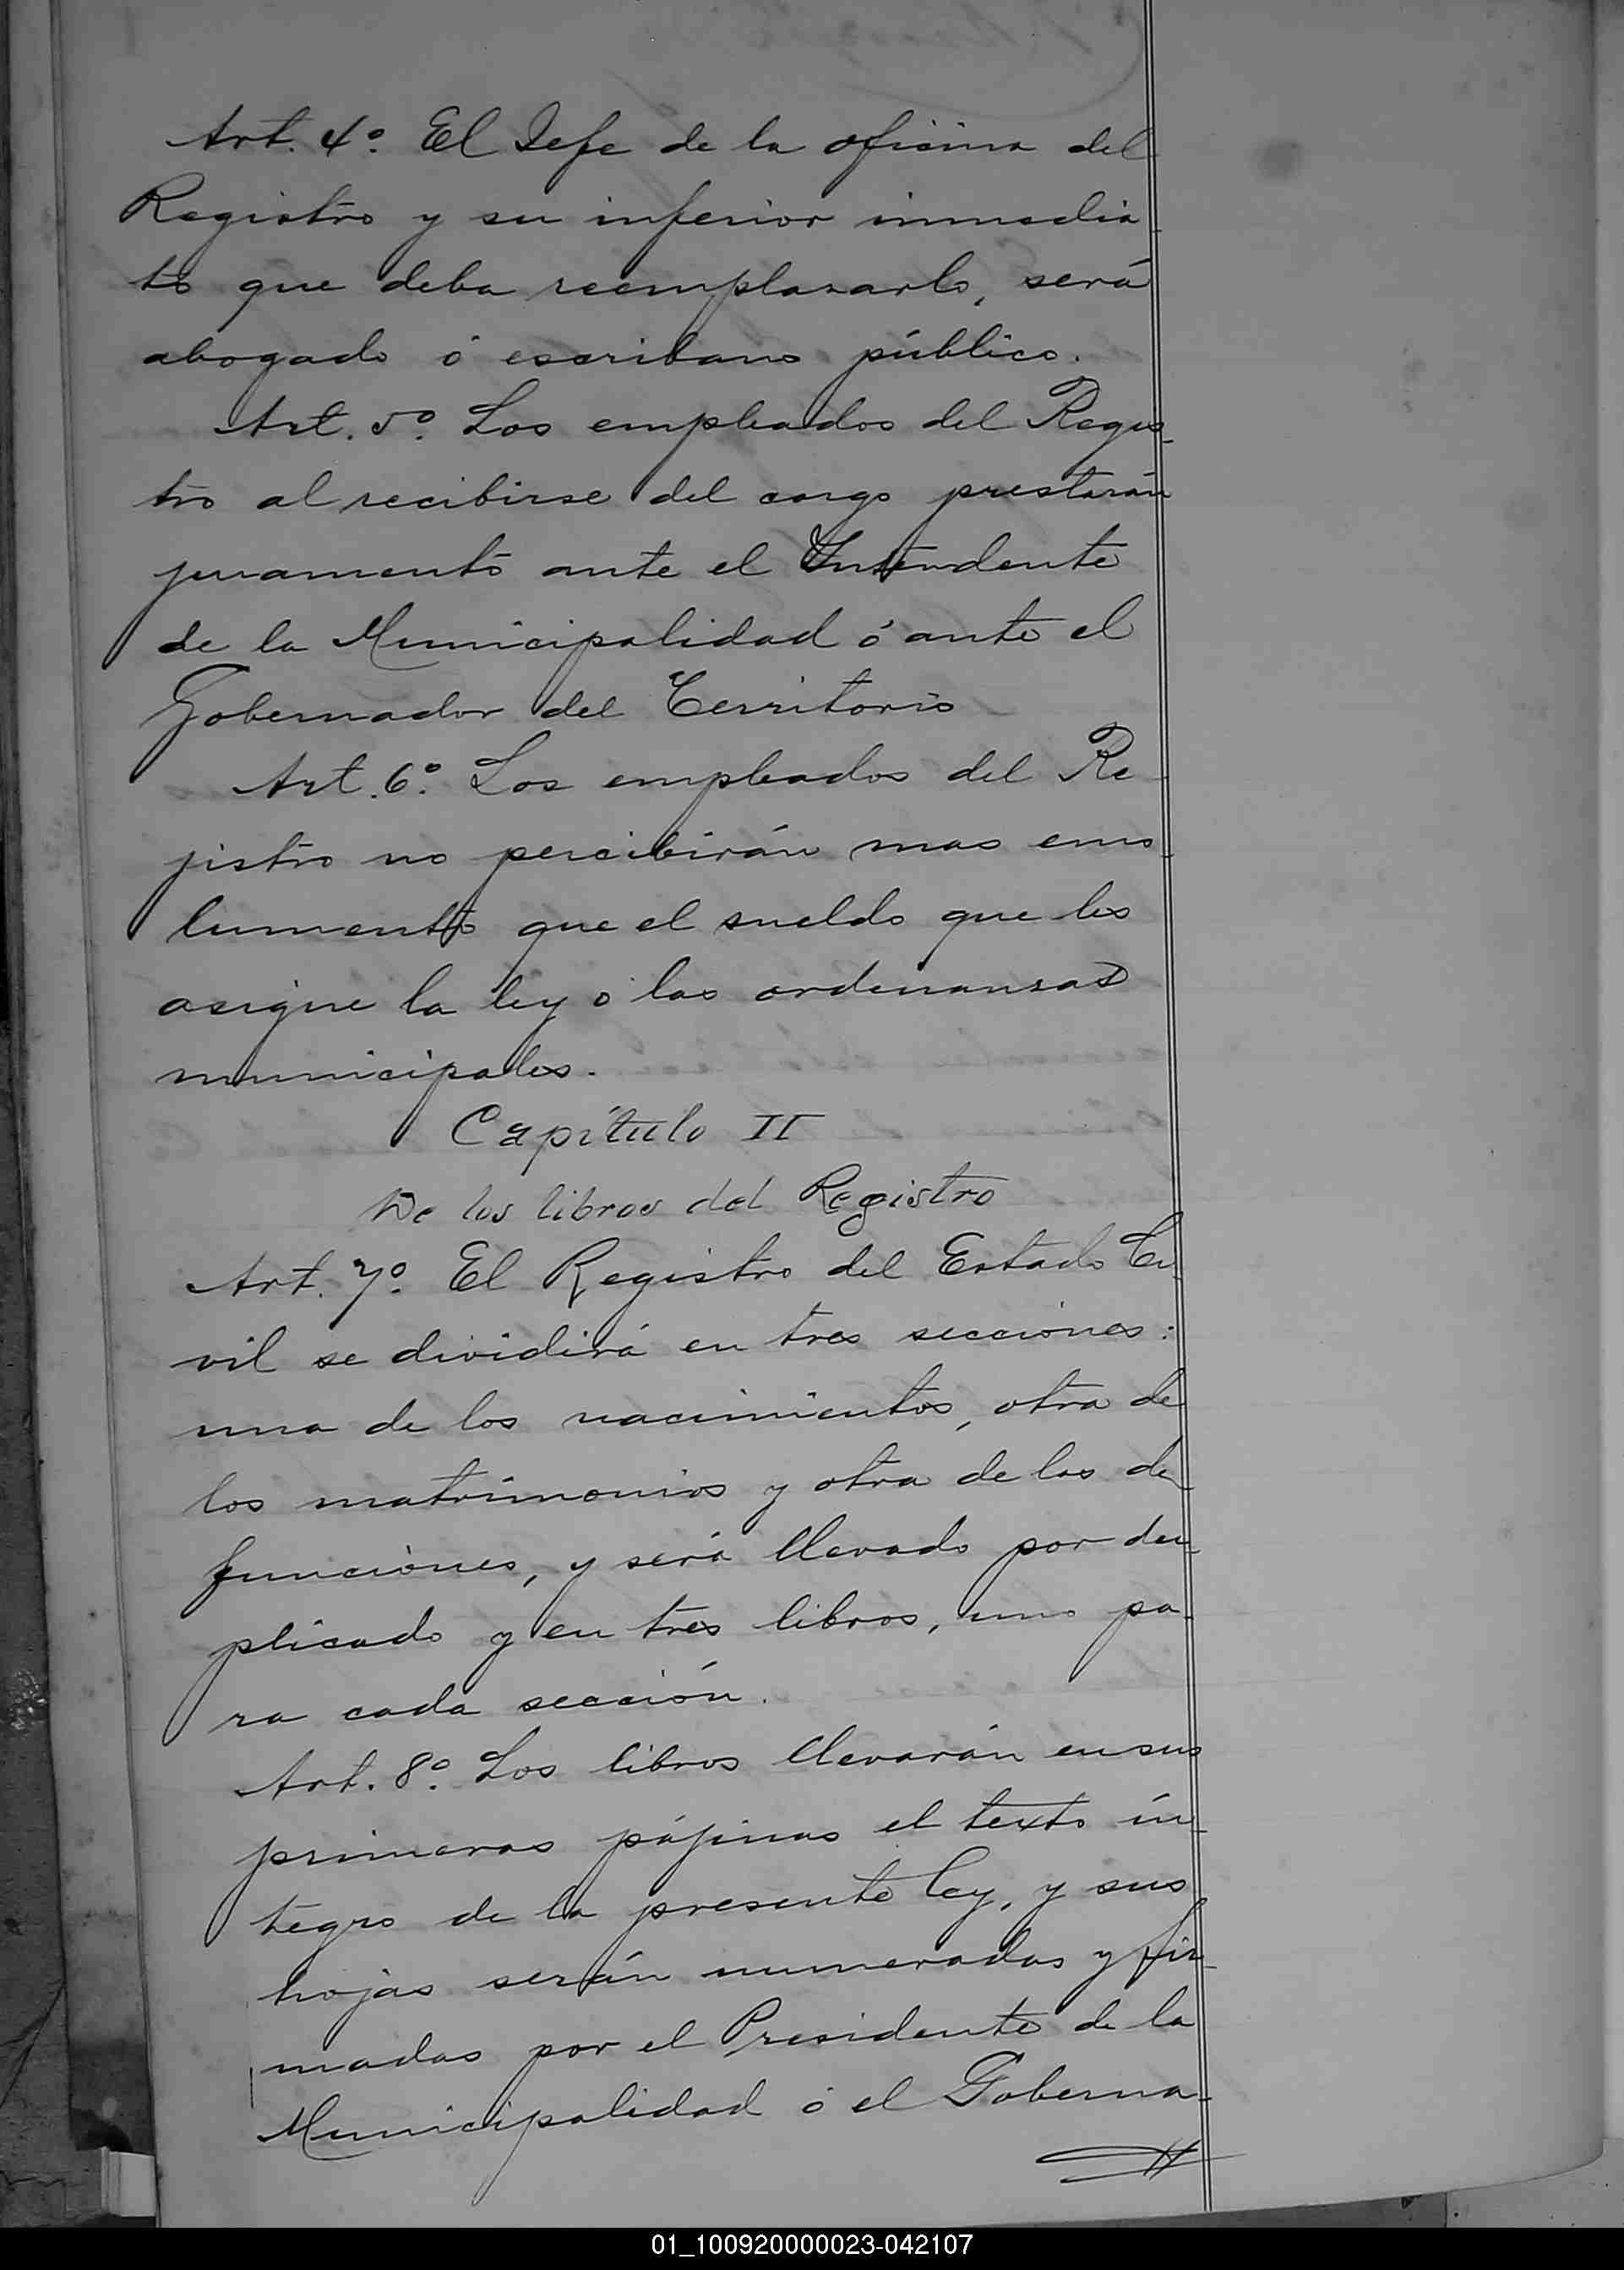 Art. 4º. El Jefe de la oficina del
Registro y su inferior inmedia
to que deba reemplazarlo, será
abogado ó escribano público.
Art. 5º. Los empleados del Regis-
tro al recibirse del cargo prestarán
juramento ante el Intendente
de la Municipalidad ó ante el
Gobernador del Territorio
Art. 6º. Los empleados del Re-
jistro no percibirán mas emo-
lumento que el sueldo que les
asigne la ley o las ordenanzas
municipales.
Capítulo II
De los libros del Registro
Art. 7º. El Registro del Estado Ci-
vil se dividirá en tres secciones:
una de los nacimientos, otra de
los matrimonios y otra de las de-
funciones, y será llevado por du-
plicado y en tres libros, uno pa-
ra cada sección.
Art. 8º. Los libros llevarán en sus
primeras pájinas el texto ín-
tegro de la presente ley, y sus
hojas serán numeradas y fir-
madas por el Presidente de la
Municipalidad ó el Goberna-
01_100920000023-042107